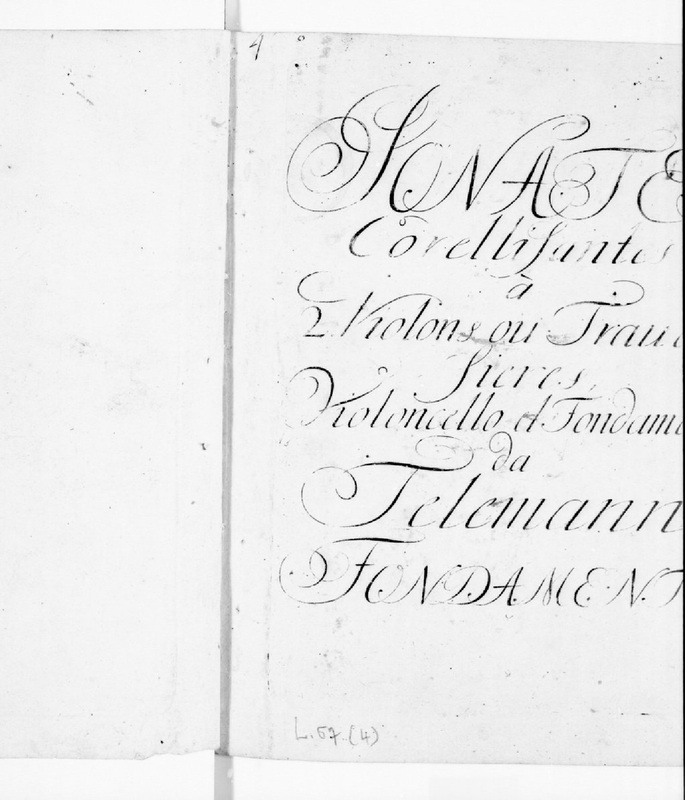 4
SONATE
Corellisantes
à
2 Violons ou Trav
sieres,
Violoncello et Fondam
da
Telemann
FONDAMENT
L. 57. (4)